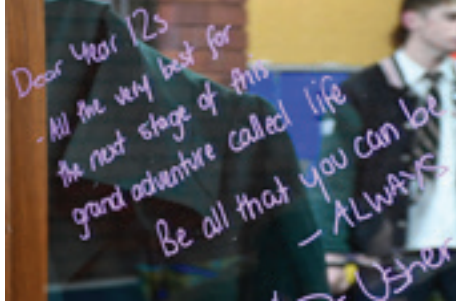 Dear Year 12s
- All the very best for
the next stage of this
grand adventure called life
Be all that you can be
- ALWAYS
Usher